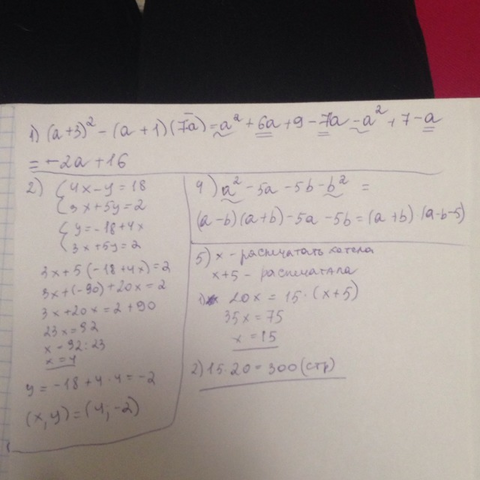 1) (a+3)² - (a+1)(7-a) = a² + 6a + 9 - 7a - a² + 7 - a
= -2a + 16
2) { 4x - y = 18
3x + 5y = 2
{ y = -18 + 4x
3x + 5y = 2
3x + 5(-18 + 4x) = 2
3x + (-90) + 20x = 2
3x + 20x = 2 + 90
23x = 92
x = 92:23
x = 4
y = -18 + 4·4 = -2
(x, y) = (4; -2)
4) a² - 5a - 5b - b² =
(a-b)(a+b) - 5a - 5b = (a+b)(a-b-5)
5) x - распечатать хотела
x+5 - распечатала
1) 20x = 15·(x+5)
35x = 75
x = 15
2) 15·20 = 300 (стр)